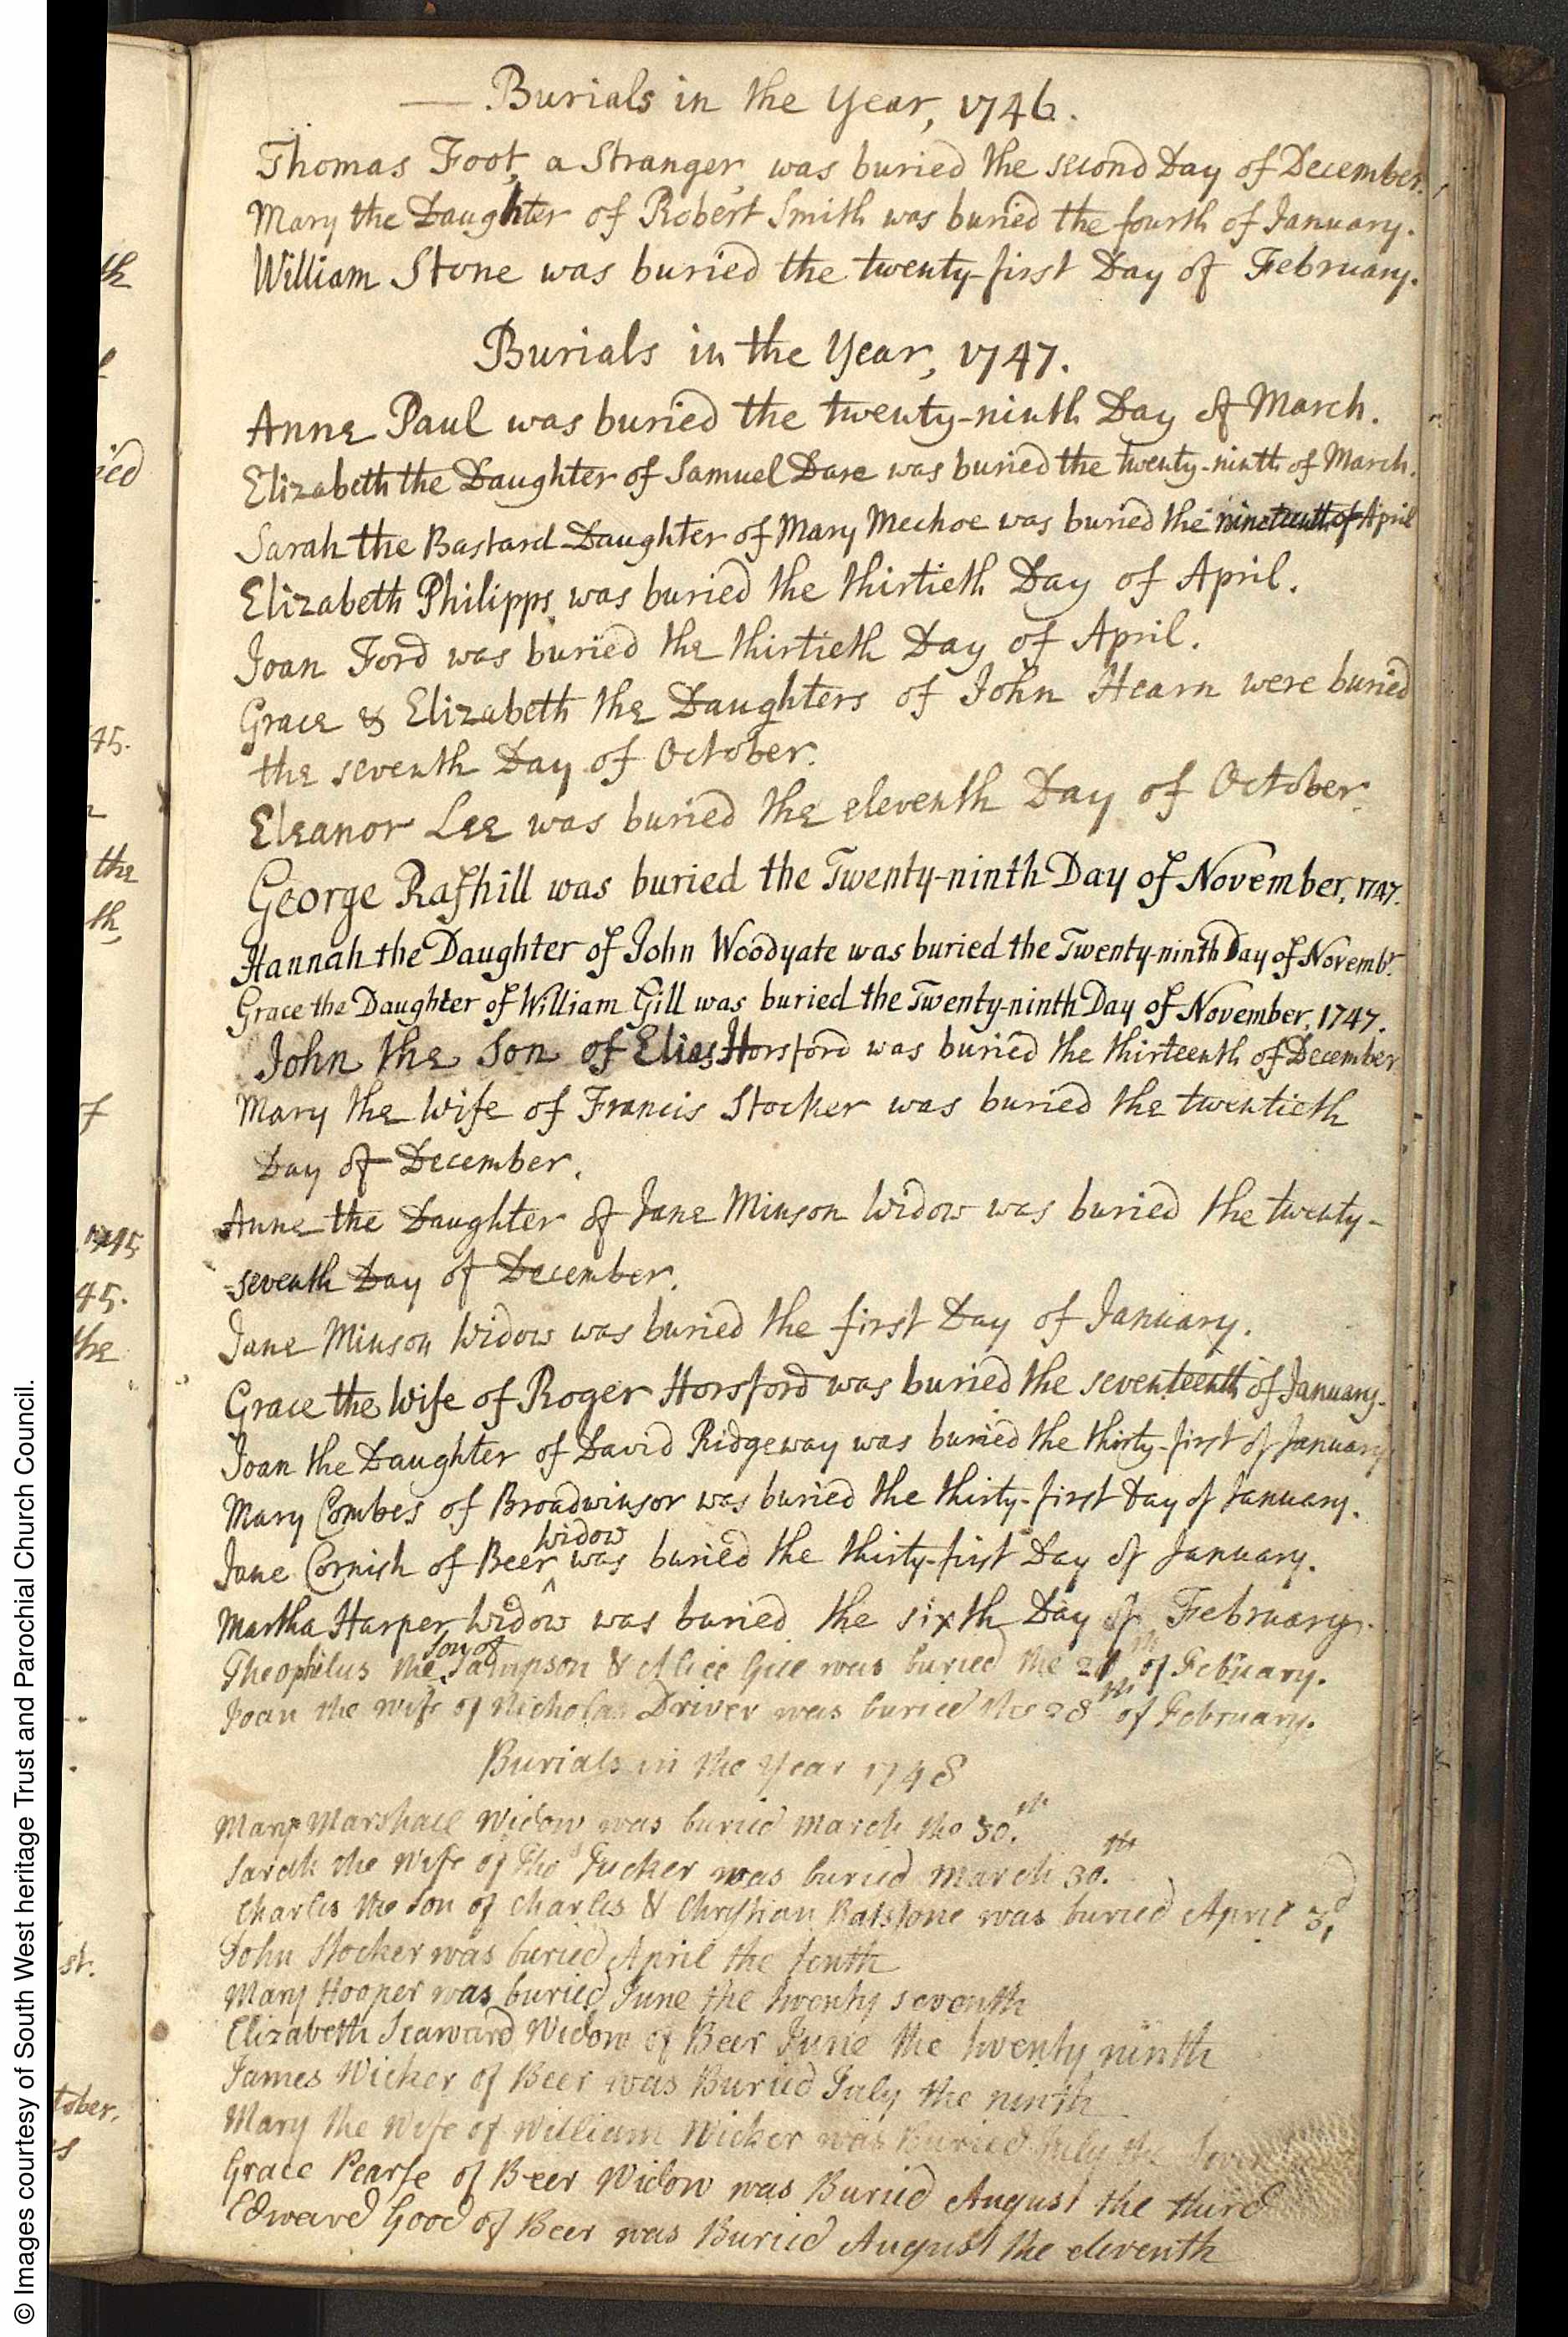 Burials in the Year, 1746.
Thomas Foot, a Stranger, was buried the second Day of December.
Mary the Daughter of Robert Smith was buried the fourth of January.
William Stone was buried the twenty-first Day of February.
Burials in the Year, 1747.
Anne Paul was buried the twenty-ninth Day of March.
Elizabeth the Daughter of Samuel Dare was buried the twenty-ninth of March.
Sarah the Bastard Daughter of Mary Mechoe was buried the nineteenth of April
Elizabeth Philipps was buried the thirtieth Day of April.
Joan Ford was buried the thirtieth Day of April.
Grace & Elizabeth the Daughters of John Hearn were buried
the seventh Day of October.
Eleanor Lee was buried the eleventh Day of October.
George Raſhill was buried the Twenty-ninth Day of November, 1747.
Hannah the Daughter of John Woodyate was buried the Twenty-ninth Day of Novembr.
Grace the Daughter of William Gill was buried the Twenty-ninth Day of November, 1747.
John the Son of Elias Horsford was buried the thirteenth of December
Mary the Wife of Francis Stocker was buried the twentieth
Day of December.
Anne the Daughter of Jane Minson Widow was buried the twenty-
-seventh Day of December.
Jane Minson Widow was buried the first Day of January.
Grace the Wife of Roger Horsford was buried the seventeenth of January.
Joan the Daughter of David Ridgeway was buried the thirty-first of January
Mary Combes of Broadwinsor was buried the thirty-first Day of January.
Jane Cornish of Beer ^widow was buried the thirty-first Day of January.
Martha Harper Widow was buried the sixth Day of February.
Theophilus the son of Sampson & Alice Gill was buried the of February.
Joan the wife of Nicholas Driver was buried the 28th of February.
Burials in the Year 1748
Mary Marshall Widow was buried March the 30.th
Sarah the Wife of Thos Tucker was buried March 30.th
Charles the Son of Charles & Christian Balstone was buried April 3d,
John Stocker was buried April the tenth
Mary Hooper was buried June the twenty seventh
Elizabeth Seaward Widow of Beer June the twenty ninth
James Wicker of Beer was Buried July the ninth
Mary the Wife of William Wicker was Buried July the
Grace Pearſe of Beer Widow was Buried August the third
Edward Good of Beer was Buried August the eleventh
th
ied
45.
the
th,
of
1745
45.
the
st.
tober.
© Images courtesy of South West heritage Trust and Parochial Church Council.